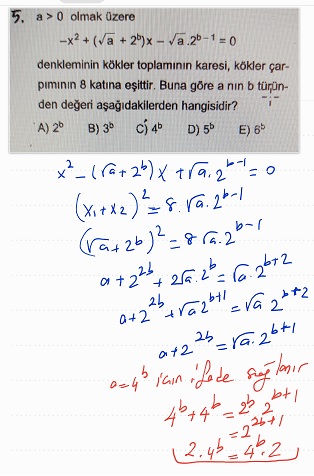 5. a > 0 olmak üzere
−x² + (√a + 2ᵇ)x − √a.2ᵇ⁻¹ = 0
denkleminin kökler toplamının karesi, kökler çar-
pımının 8 katına eşittir. Buna göre a nın b türün-
den değeri aşağıdakilerden hangisidir?
A) 2ᵇ B) 3ᵇ C) 4ᵇ D) 5ᵇ E) 6ᵇ
x² − (√a + 2ᵇ)x + √a.2ᵇ⁻¹ = 0
(x₁ + x₂)² = 8.√a.2ᵇ⁻¹
(√a + 2ᵇ)² = 8√a.2ᵇ⁻¹
a + 2²ᵇ + 2√a.2ᵇ = √a.2ᵇ⁺²
a + 2²ᵇ + √a 2ᵇ⁺¹ = √a 2ᵇ⁺²
a + 2²ᵇ = √a.2ᵇ⁺¹
a = 4ᵇ için ifade sağlanır
4ᵇ + 4ᵇ = 2ᵇ.2ᵇ⁺¹
= 2²ᵇ⁺¹
2.4ᵇ = 4ᵇ.2